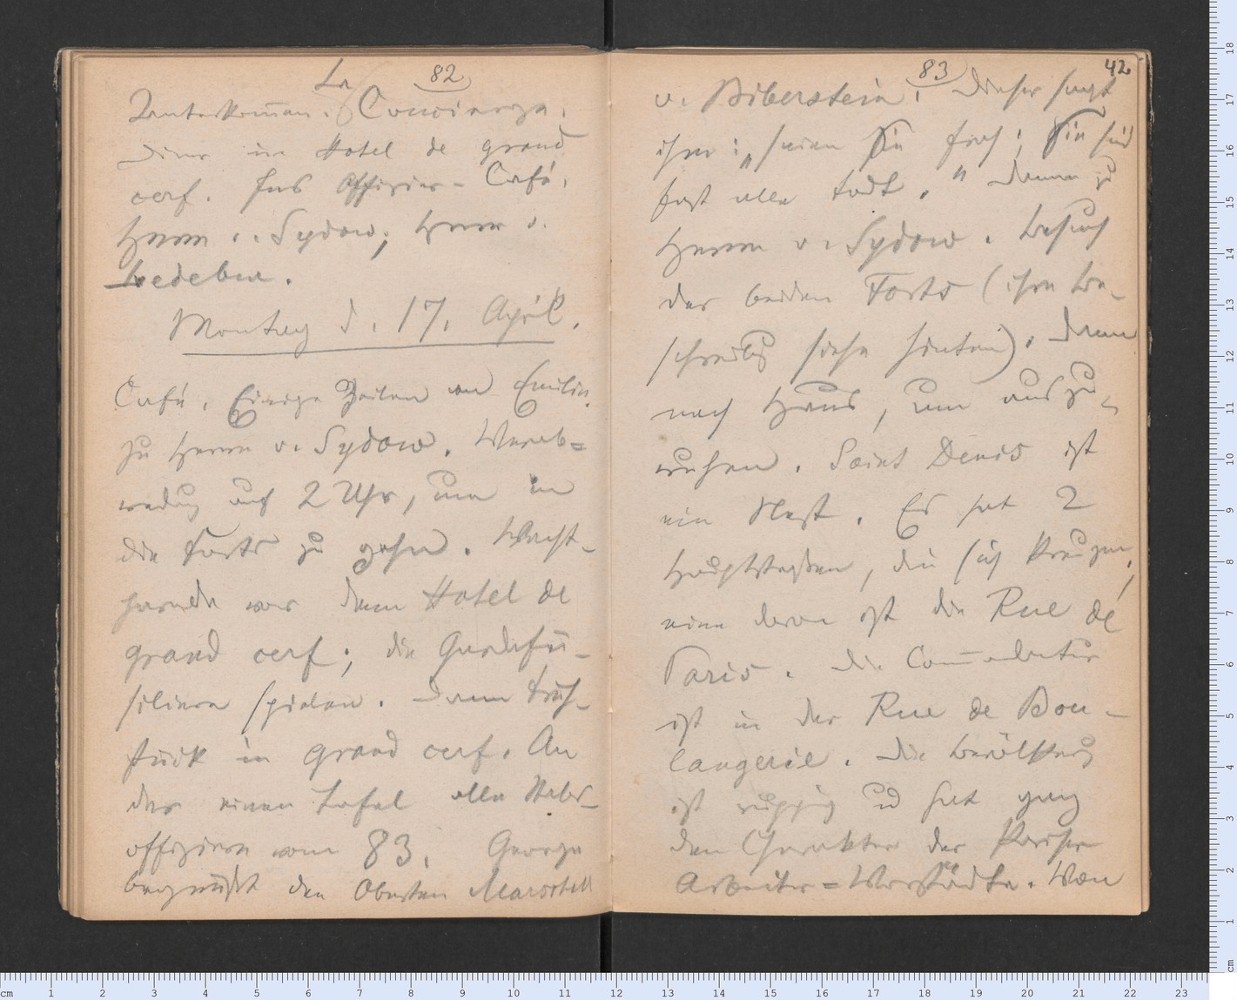 82
Unterkommen. La Concierge.
Diner im Hotel de grand
cerf. Ins Offizier-Café.
Herrn v. Sydow; Herrn v.
Ledebur.
Montag d. 17. April.
Café. Einige Zeilen an Emilie.
Zu Herrn v. Sydow. Verab=
redung auf 2 Uhr, um in
die Forts zu gehn. Wacht-
parade vor dem Hotel de
grand cerf; die Gardefü-
siliere spielen. Dann Früh-
stück in grand cerf. An
der einen Tafel alle Stabs-
offiziere vom 83. George
begrüßt den Obersten Marschall
83
42
v. Biberstein. Dieser sagt
ihm: „seien Sie froh; Sie sind
fast alle todt." Dann zu
Herrn v. Sydow. Besuch
der beiden Forts (ihre Be-
schreibg siehe hinten). Dann
nach Haus, um auszu-
ruhen. Saint Denis ist
ein Nest. Es hat 2
Hauptstraßen, die sich kreuzen,
eine davon ist die Rue de
Paris. Die Commandantur
ist in der Rue de Bou-
langerie. Die Bevölkerg
ist ruppig und hat ganz
den Charakter der Pariser
Arbeiter=Vorstädte. Von